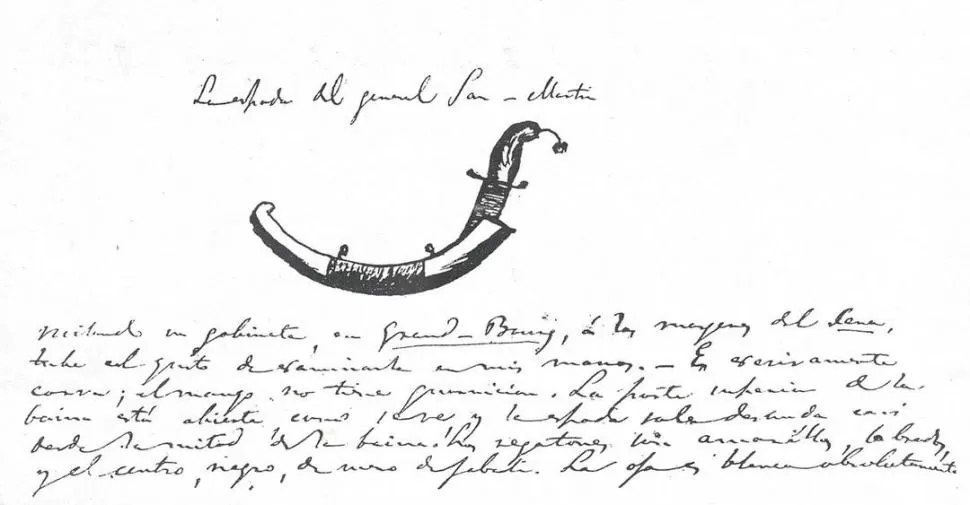 La espada del general San-Martin
Visitando su gabinete, en Grand-Bourg, á las margenes del Sena,
tube el gusto de examinarla en mis manos. - Es excesivamente
corva; el mango no tiene guarnicion. La parte superior de la
baina está abierta, como se ve y la espada sale desnuda casi
desde la mitad de la baina. Los regatones son amarillos, labrados,
y el centro, negro, de cuero de jabalí. La oja es blanca absolutamente